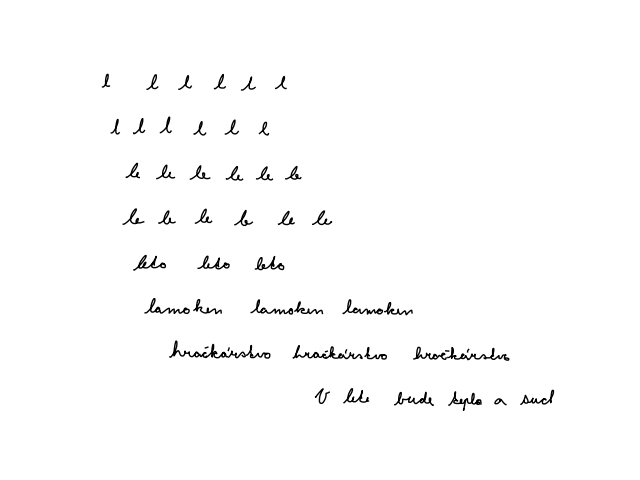 l l l l l l
l l l l l l
le le le le le le
le le le le le le
leto leto leto
lamoken lamoken lamoken
hračkárstvo hračkárstvo hračkárstvo
V lete bude teplo a such